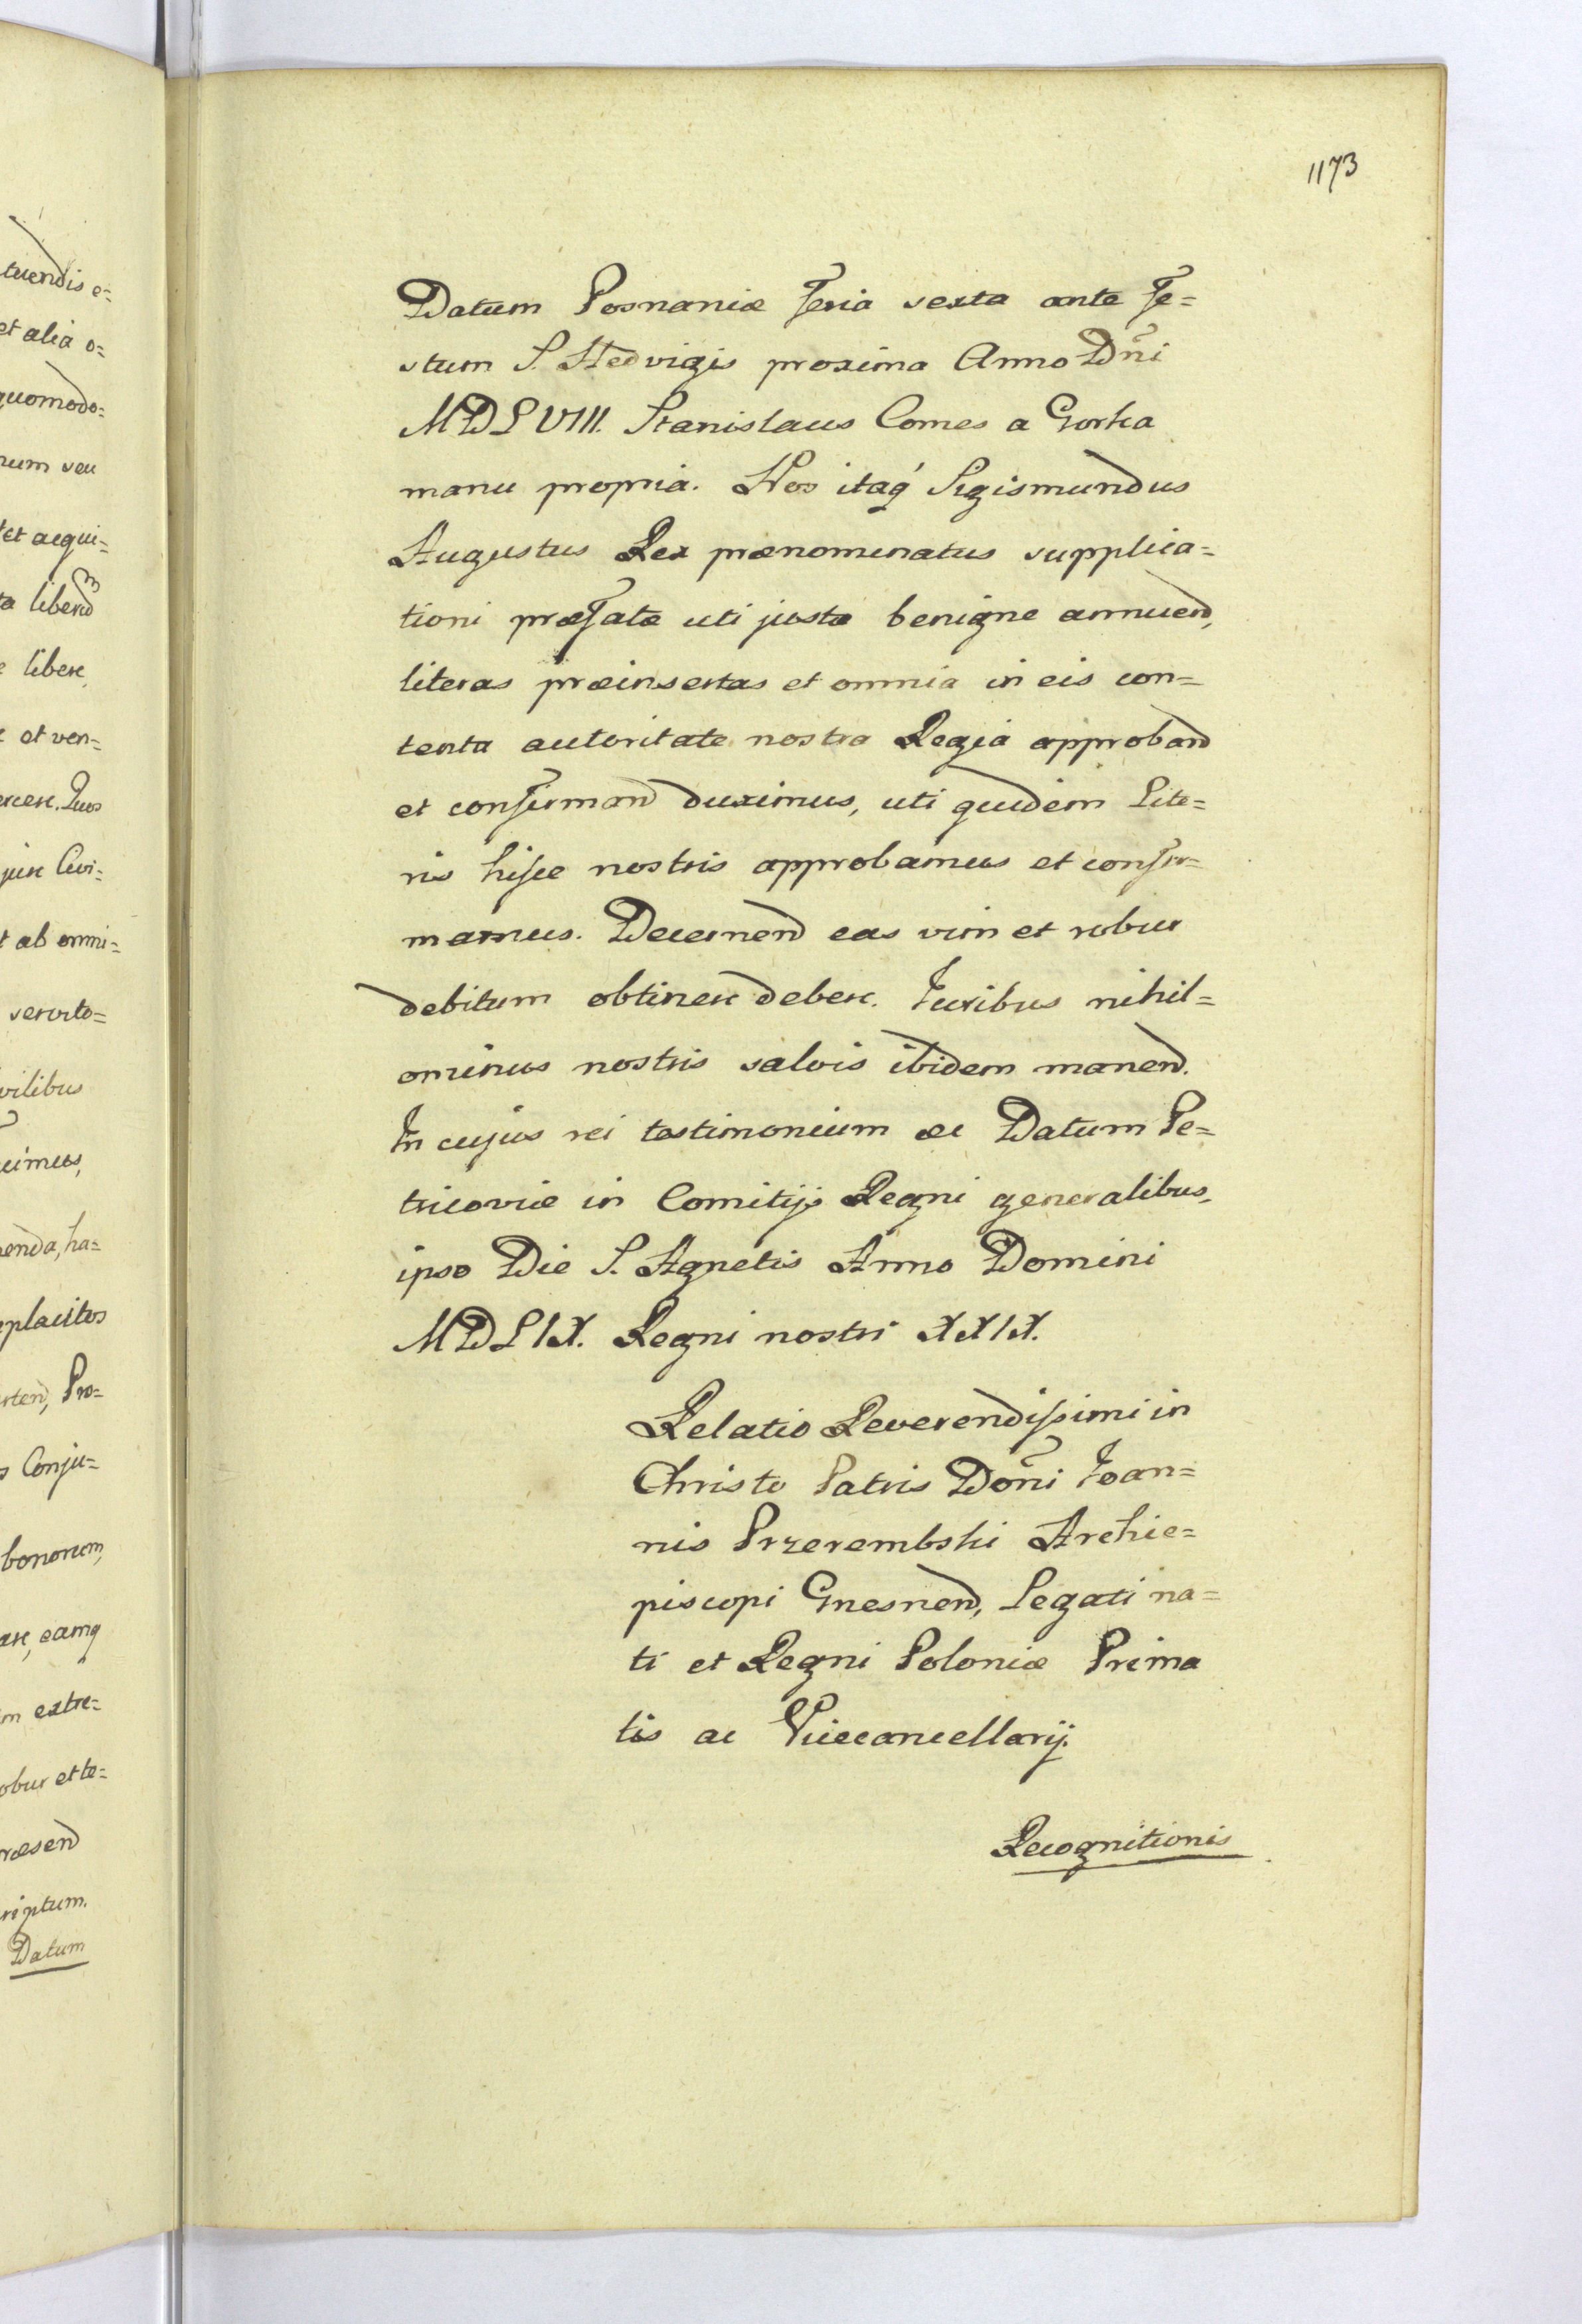 1173
tuendis e=
et alia o=
quomodo=
num seu
et aequi=
libere
et ven=
jure Civi=
t ab omni=
servito=
vilibus
uimus,
enda, ha=
placitos
Pro=
Conju=
bonorum,
eamq
m extre=
obur et te=
raesend
riptum.
Datum
Datum Posnaniæ Feria sexta ante Fe=
stum S. Hedvigis proxima Anno Dñi
MDLVIII. Stanislaus Comes a Gorka
manu propria. Nos itaq́ Sigismundus
Augustus Rex prænominatus supplica=
tioni præfatæ uti justæ benigne annuend,
literas præinsertas et omnia in eis con=
tenta autoritate nostra Regia approband
et confirmand duximus, uti quidem Lite=
ris hisce nostris approbamus et confir=
mamus. Decernend eas vim et robur
debitum obtinere debere. Juribus nihil=
ominus nostris salvis ibidem manend.
In cujus rei testimonium &c Datum Pe=
tricoviæ in Comitijs Regni generalibus,
ipso Die S. Agnetis Anno Domini
MDLIX. Regni nostri XXIX.
Relatio Reverendissimi in
Christo Patris Dom̃ni Joan=
nis Przerembski Archie=
piscopi Gnesnen, Legati na=
ti et Regni Poloniæ Prima
tis ac Vicecancellarij.
Recognitionis